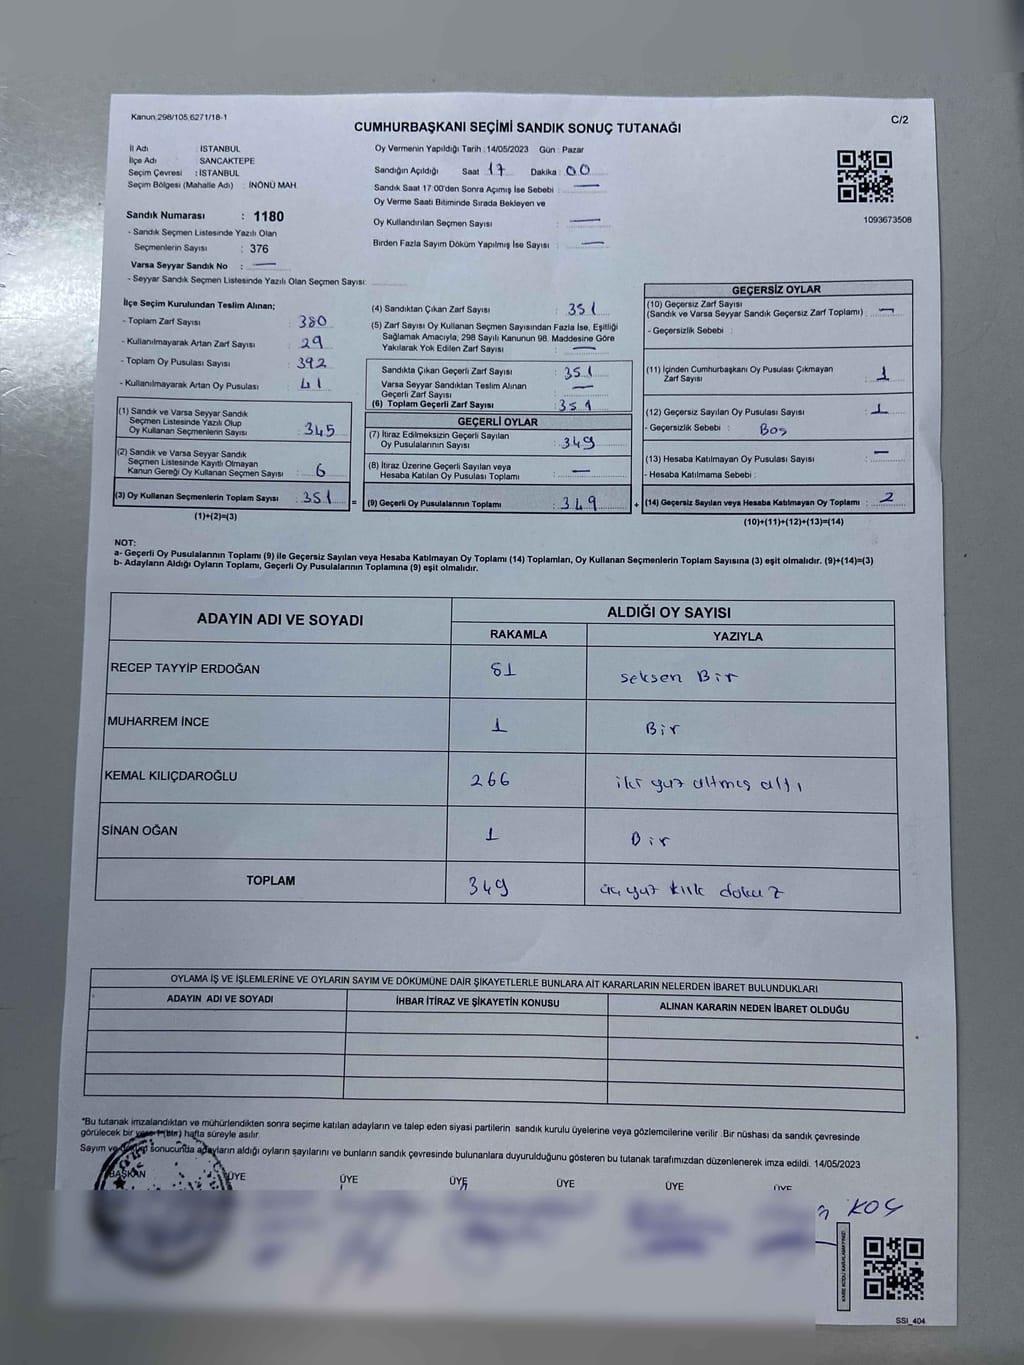 Kanun,298/105,6271/18-1
C/2
CUMHURBAŞKANI SEÇİMİ SANDIK SONUÇ TUTANAĞI
İl Adı : İSTANBUL
İlçe Adı : SANCAKTEPE
Seçim Çevresi : İSTANBUL
Seçim Bölgesi (Mahalle Adı) : İNÖNÜ MAH.
Sandık Numarası : 1180
- Sandık Seçmen Listesinde Yazılı Olan
Seçmenlerin Sayısı : 376
Varsa Seyyar Sandık No : —
- Seyyar Sandık Seçmen Listesinde Yazılı Olan Seçmen Sayısı:
Oy Vermenin Yapıldığı Tarih :14/05/2023 Gün : Pazar
Sandığın Açıldığı Saat 17 Dakika 00
Sandık Saat 17:00'den Sonra Açımış İse Sebebi : —
Oy Verme Saati Bitiminde Sırada Bekleyen ve
Oy Kullandırılan Seçmen Sayısı : —
Birden Fazla Sayım Döküm Yapılmış İse Sayısı : —
1093673508
İlçe Seçim Kurulundan Teslim Alınan;
- Toplam Zarf Sayısı : 380
- Kullanılmayarak Artan Zarf Sayısı : 29
- Toplam Oy Pusulası Sayısı : 392
- Kullanılmayarak Artan Oy Pusulası : 41
(1) Sandık ve Varsa Seyyar Sandık
Seçmen Listesinde Yazılı Olup
Oy Kullanan Seçmenlerin Sayısı : 345
(2) Sandık ve Varsa Seyyar Sandık
Seçmen Listesinde Kayıtlı Olmayan
Kanun Gereği Oy Kullanan Seçmen Sayısı : 6
(3) Oy Kullanan Seçmenlerin Toplam Sayısı : 351
(1)+(2)=(3)
(4) Sandıktan Çıkan Zarf Sayısı : 351
(5) Zarf Sayısı Oy Kullanan Seçmen Sayısından Fazla İse, Eşitliği
Sağlamak Amacıyla, 298 Sayılı Kanunun 98. Maddesine Göre
Yakılarak Yok Edilen Zarf Sayısı : —
Sandıkta Çıkan Geçerli Zarf Sayısı : 351
Varsa Seyyar Sandıktan Teslim Alınan
Geçerli Zarf Sayısı : —
(6) Toplam Geçerli Zarf Sayısı : 351
GEÇERLİ OYLAR
(7) İtiraz Edilmeksizin Geçerli Sayılan
Oy Pusulalarının Sayısı : 349
(8) İtiraz Üzerine Geçerli Sayılan veya
Hesaba Katılan Oy Pusulası Toplamı : —
= (9) Geçerli Oy Pusulalarının Toplamı : 349
GEÇERSİZ OYLAR
(10) Geçersiz Zarf Sayısı
(Sandık ve Varsa Seyyar Sandık Geçersiz Zarf Toplamı) : —
- Geçersizlik Sebebi :
(11) İçinden Cumhurbaşkanı Oy Pusulası Çıkmayan
Zarf Sayısı : 1
(12) Geçersiz Sayılan Oy Pusulası Sayısı : 1
- Geçersizlik Sebebi : Boş
(13) Hesaba Katılmayan Oy Pusulası Sayısı : —
- Hesaba Katılmama Sebebi :
+ (14) Geçersiz Sayılan veya Hesaba Katılmayan Oy Toplamı : 2
(10)+(11)+(12)+(13)=(14)
NOT:
a- Geçerli Oy Pusulalarının Toplamı (9) ile Geçersiz Sayılan veya Hesaba Katılmayan Oy Toplamı (14) Toplamları, Oy Kullanan Seçmenlerin Toplam Sayısına (3) eşit olmalıdır. (9)+(14)=(3)
b- Adayların Aldığı Oyların Toplamı, Geçerli Oy Pusulalarının Toplamına (9) eşit olmalıdır.
ADAYIN ADI VE SOYADI ALDIĞI OY SAYISI
RAKAMLA YAZIYLA
RECEP TAYYİP ERDOĞAN 81 seksen Bir
MUHARREM İNCE 1 Bir
KEMAL KILIÇDAROĞLU 266 iki yüz altmış altı
SİNAN OĞAN 1 Bir
TOPLAM 349 üç yüz kırk dokuz
OYLAMA İŞ VE İŞLEMLERİNE VE OYLARIN SAYIM VE DÖKÜMÜNE DAİR ŞİKAYETLERLE BUNLARA AİT KARARLARIN NELERDEN İBARET BULUNDUKLARI
ADAYIN ADI VE SOYADI İHBAR İTİRAZ VE ŞİKAYETİN KONUSU ALINAN KARARIN NEDEN İBARET OLDUĞU
*Bu tutanak imzalandıktan ve mühürlendikten sonra seçime katılan adayların ve talep eden siyasi partilerin sandık kurulu üyelerine veya gözlemcilerine verilir .Bir nüshası da sandık çevresinde
görülecek bir yere 1 (bir) hafta süreyle asılır.
Sayım ve döküm sonucunda adayların aldığı oyların sayılarını ve bunların sandık çevresinde bulunanlara duyurulduğunu gösteren bu tutanak tarafımızdan düzenlenerek imza edildi. 14/05/2023
BAŞKAN ÜYE ÜYE ÜYE ÜYE ÜYE ÜYE
KOÇ
KARE KODU KARALAMAYINIZ!
SSİ_404